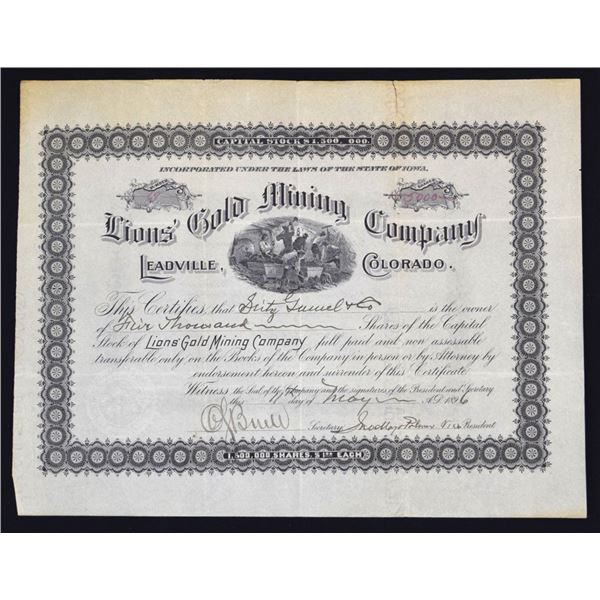 CAPITAL STOCK $1,500,000.
INCORPORATED UNDER THE LAWS OF THE STATE OF IOWA.
5000
Lions' Gold Mining Company
LEADVILLE, COLORADO.
This Certifies, that & Co is the owner
of Thousand Shares of the Capital
Stock of Lions' Gold Mining Company full paid and non assessable
transferable only on the Books of the Company in person or by Attorney by
endorsement hereon and surrender of this Certificate.
Witness the Seal of the Company and the signatures of the President and Secretary
this day of May A.D. 1896
Secretary Vice President
1,500,000 SHARES, $1.00 EACH